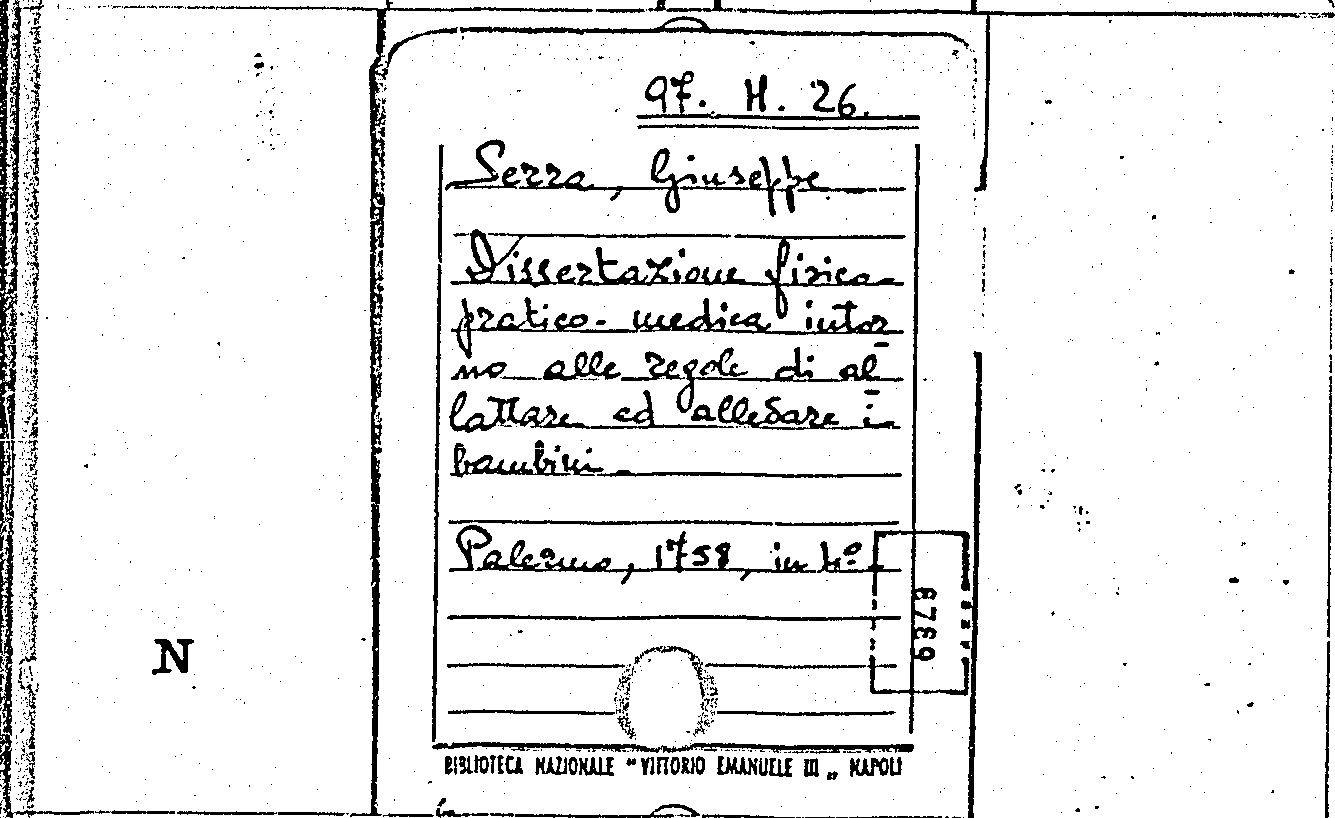 97. H. 26.
Serra, Giuseppe
Dissertazione fisica-
pratico-medica intor
no alle regole di al
lattare ed allevare i
bambini.
Palermo, 1758, in 4º.
6379
N
BIBLIOTECA NAZIONALE "VITTORIO EMANUELE III„ NAPOLI